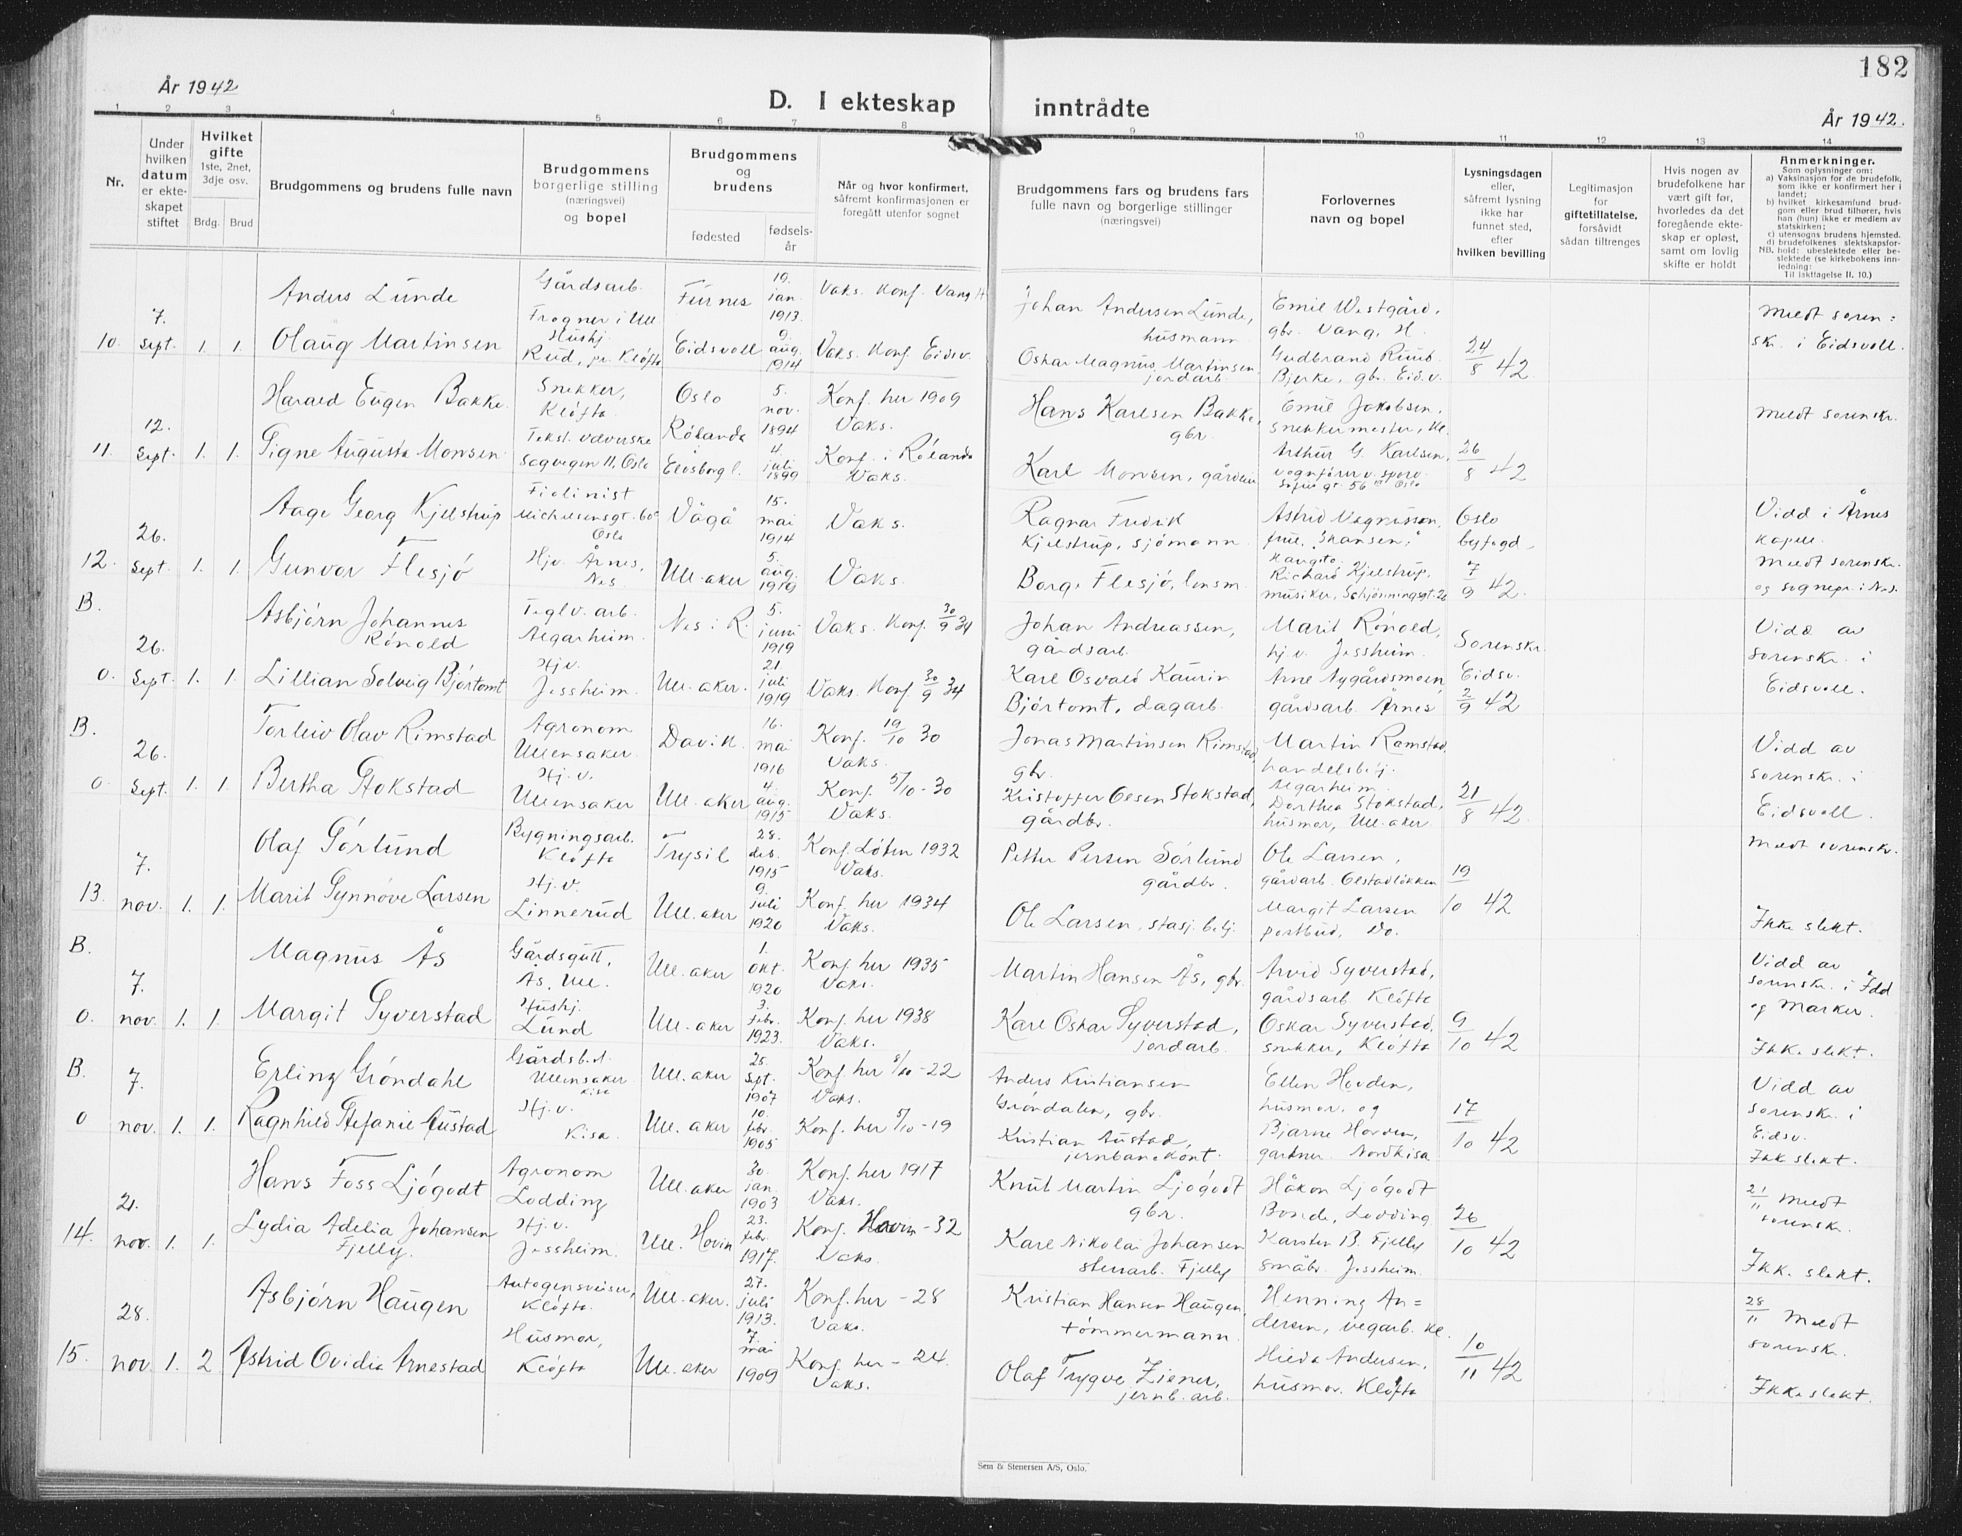 182
År 1942
År 1942.
D. I ekteskap inntrådte
1 2 3 4 5 6 7 8 9 10 11 12 13 14
Nr.
Under hvilken datum er ekte- skapet stiftet
Hvilket gifte
1ste, 2net, 3dje osv.
Brdg. Brud
Brudgommens og brudens fulle navn
Brudgommens borgerlige stilling (næringsvei) og bopel
Brudgommens og brudens
fødested
fødsels- år
Når og hvor konfirmert, såfremt konfirmasjonen er foregått utenfor sognet
Brudgommens fars og brudens fars fulle navn og borgerlige stillinger (næringsvei)
Forlovernes navn og bopel
Lysningsdagen eller, såfremt lysning ikke har funnet sted, efter hvilken bevilling
Legitimasjon for giftetillatelse, forsåvidt sådan tiltrenges
Hvis nogen av brudefolkene har vært gift før, hvorledes da det foregående ekte- skap er opløst, samt om lovlig skifte er holdt
Anmerkninger.
Som oplysninger om:
a) Vaksinasjon for de brudefolk, som ikke er konfirmert her i landet;
b) hvilket kirkesamfund brud- gom eller brud tilhører, hvis han (hun) ikke er medlem av statskirken;
c) utensogns brudens hjemsted.
d) brudefolkenes slektskapsfor- hold: ubeslektede eller be- slektede (se kirkebokens inn- ledning:
NB.
Til iakttagelse II. 10.)
10. 7. Sept. 1. 1.
Anders Lunde
Gårdsarb. Frogner i Ull.
Furnes
19. jan. 1913.
Vaks. Konf. Vang H.
Johan Andersen Lunde, husmann
Emil Westgård, gbr. Vang, H.
24/8 42
Meldt soren= skr. i Eidsvoll.
Olaug Martinsen
Hushj. Rud, pr. Kløfta
Eidsvoll
9. aug. 1914
Vaks. Konf. Eidsv.
Oskar Magnus Martinsen, jordarb.
Gudbrand Ruub Bjerke, gbr. Eidsv.
11. 12. Sept. 1. 1.
Harald Eugen Bakke.
Snekker, Kløfta.
Oslo
5. nov. 1894
Konf. her 1909 Vaks.
Hans Karlsen Bakke, gbr.
Emil Jakobsen, snekkermester, Kl.
26/8 42
Meldt sorenskr.
Signe Augusta Monsen
Tekst. væverske Sagvegen 11, Oslo
Rølanda Elfsborg l.
4. juli 1899
Konf. i Rølanda Vaks.
Karl Monsen, gårdeier
Arthur G. Karlsen, vognfører v. sporv. Sofies gt. 56 Oslo
12. 26. Sept. 1. 1.
Aage Georg Kjelstrup
Fiolinist Michelsensgt. Oslo
Vågå
15. mai 1914
Vaks.
Ragnar Fredrik Kjelstrup, sjømann.
Astrid Magnusson, frue,
Oslo byfogd 7/9 42.
Vidd i Årnes Kapell. Meldt sorenskr. og sognepr. i Nes.
Gunvor Flesjø
Hjv. Årnes, Nes.
Ull.aker
5. aug. 1919
Vaks.
Borge Flesjø, lensm.
Richard Kjelstrup, musiker, Schjønningsgt.
B. 0. 26. Sept. 1. 1.
Asbjørn Johannes Rønold
Teglv. arb. Algarheim.
Nes i R.
5. juni 1919
Vaks. Konf. 30/9 34
Johan Andreassen, gårdsarb.
Marit Rønold, hj.v. Jessheim.
Sorenskr. Eidsv. 2/9 42
Vidd av sorenskr. i Eidsvoll.
Lillian Solveig Bjørtomt
Hj.v. Jessheim.
Ull.aker.
21 juli 1919
Vaks. Konf. 30/9 34
Karl Osvald Kaurin Bjørtomt, dagarb.
Arne Nygårdsmoen gårdsarb. Årnes
B. 0. 26. Sept. 1. 1.
Torleiv Olav Rimstad
Agronom Ullensaker.
Davik.
16. mai 1916
Konf. 19/10 30 Vaks.
Jonas Martinsen Rimstad, gbr.
Martin Ramstad, handelsbetj. Algarheim.
21/8 42
Vidd av sorenskr. i Eidsvoll.
Bertha Stokstad
Hj.v. Ullensaker
Ull.aker
4. aug. 1915
Konf. 5/10-30 Vaks.
Kristoffer Olsen Stokstad, gårdbr.
Dorthea Stokstad, husmor, Ull.aker
13. 7. nov. 1. 1.
Olaf Sørlund
Bygningsarb. Kløfta
Trysil
28. des. 1915
Konf. Løten 1932 Vaks.
Petter Persen Sørlund gårdbr.
Ole Larsen, gårdarb. Olstadløkken
19/10 42
Meldt sorenskr. Ikke slekt.
Marit Synnøve Larsen
Hj.v. Linnerud
Ull.aker
9. juli 1920
Konf. her 1934 Vaks.
Ole Larsen, stasj. betj.
Margit Larsen postbud, Do.
B. 0. 7. nov. 1. 1.
Magnus Ås
Gårdsgutt, Ås, Ull.
Ull.aker
1. okt. 1920
Konf. her 1935 Vaks.
Martin Hansen Ås, gbr.
Arvid Syverstad, gårdsarb Kløfta
9/10 42
Vidd av sorenskr. i Idd og Marker. Ikk. slekt.
Margit Syverstad
Hushj. Lund
Ull.aker
3. febr. 1923.
Konf. her 1938 Vaks.
Karl Oskar Syverstad, jordarb.
Oskar Syverstad, snekker, Kløfta
B. 0 7. nov. 1. 1.
Erling Grøndahl
Gårdsb.st. Ullensaker Kisa
Ull.aker
25. Sept. 1907
Konf. her 8/10-22 Vaks.
Anders Kristiansen Grøndalen, gbr.
Ellen Hovden, husmor, og
17/10 42
Vidd av sorenskr. i Eidsv. Ikk slekt.
Ragnhild Stefanie Austad
Hj.v. Kisa.
Ull.aker
10. febr. 1905
Konf. her 5/10-19
Kristian Austad, jernbanekont.
Bjarne Hovden, gartner. Nordkisa
14. 21. nov. 1. 1.
Hans Foss Ljøgodt
Agronom Lodding
Ull.aker
30. jan. 1903
Konf. her 1917 Vaks.
Knut Martin Ljøgodt gbr.
Håkon Ljøgodt Bonde, Lodding
26/10 42
21/11 Meldt sorensk. Ikk. slekt.
Lydia Adelia Johansen Fjelly.
Hj.v. Jessheim.
Ull. Hovin
23. febr. 1917.
Konf. Hovin-32 Vaks.
Karl Nikolai Johansen stenarb. Fjelly
Karsten B. Fjelly småbr. Jessheim.
15. 28. nov. 1. 2
Asbjørn Haugen
Autogensveiser, Kløfta.
Ull.aker.
27. juli 1913.
Konf. her - 28 Vaks.
Kristian Hansen Haugen, tømmermann.
Henning An= dersen, vegarb. Kl.
10/11 42
28/11 Meldt sorenskr. Ikke slekt.
Astrid Ovidia Arnestad
Husmor, Kløfta
Ull.aker
7. mai 1909
Konf. her - 24. Vaks.
Olaf Trygve Ziener, jernb. arb.
Hilda Andersen, husmor. Kløfta
Sem & Stenersen A/S, Oslo.